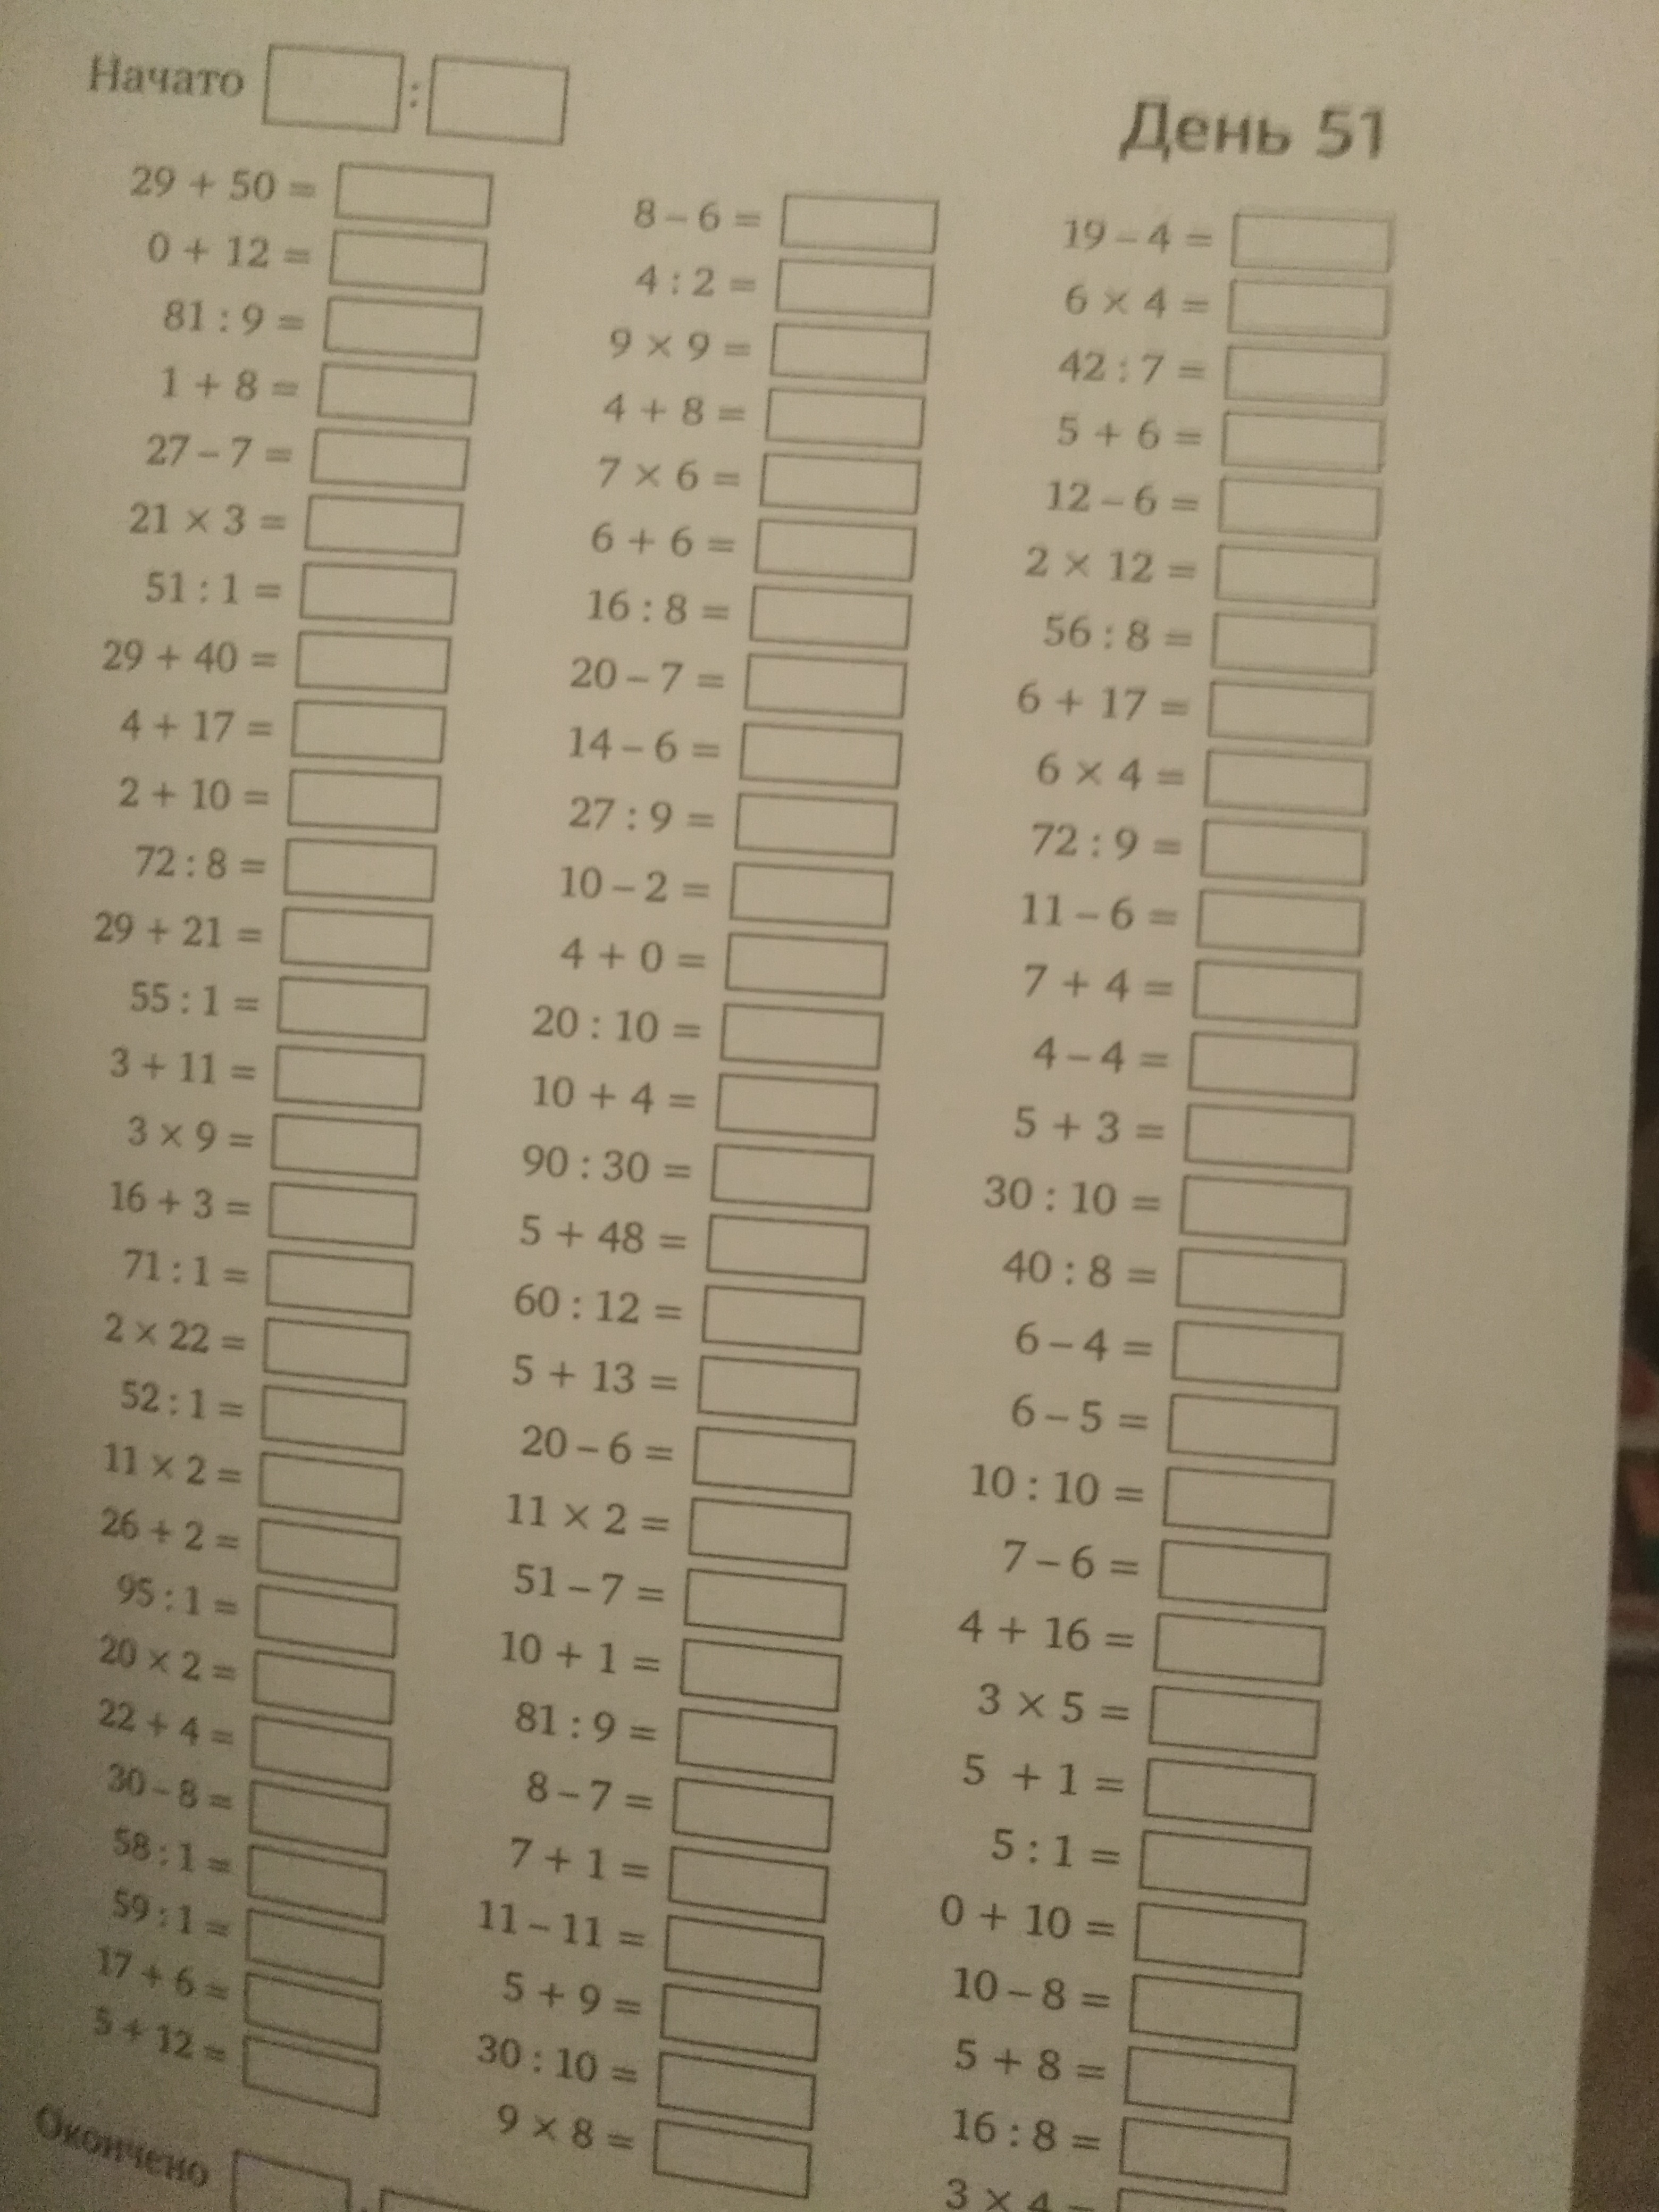 Начато :
День 51
29 + 50 =
0 + 12 =
81 : 9 =
1 + 8 =
27 – 7 =
21 × 3 =
51 : 1 =
29 + 40 =
4 + 17 =
2 + 10 =
72 : 8 =
29 + 21 =
55 : 1 =
3 + 11 =
3 × 9 =
16 + 3 =
71 : 1 =
2 × 22 =
52 : 1 =
11 × 2 =
26 + 2 =
95 : 1 =
20 × 2 =
22 + 4 =
30 – 8 =
58 : 1 =
59 : 1 =
17 + 6 =
5 + 12 =
8 – 6 =
4 : 2 =
9 × 9 =
4 + 8 =
7 × 6 =
6 + 6 =
16 : 8 =
20 – 7 =
14 – 6 =
27 : 9 =
10 – 2 =
4 + 0 =
20 : 10 =
10 + 4 =
90 : 30 =
5 + 48 =
60 : 12 =
5 + 13 =
20 – 6 =
11 × 2 =
51 – 7 =
10 + 1 =
81 : 9 =
8 – 7 =
7 + 1 =
11 – 11 =
5 + 9 =
30 : 10 =
9 × 8 =
19 – 4 =
6 × 4 =
42 : 7 =
5 + 6 =
12 – 6 =
2 × 12 =
56 : 8 =
6 + 17 =
6 × 4 =
72 : 9 =
11 – 6 =
7 + 4 =
4 – 4 =
5 + 3 =
30 : 10 =
40 : 8 =
6 – 4 =
6 – 5 =
10 : 10 =
7 – 6 =
4 + 16 =
3 × 5 =
5 + 1 =
5 : 1 =
0 + 10 =
10 – 8 =
5 + 8 =
16 : 8 =
3 × 4 =
Окончено